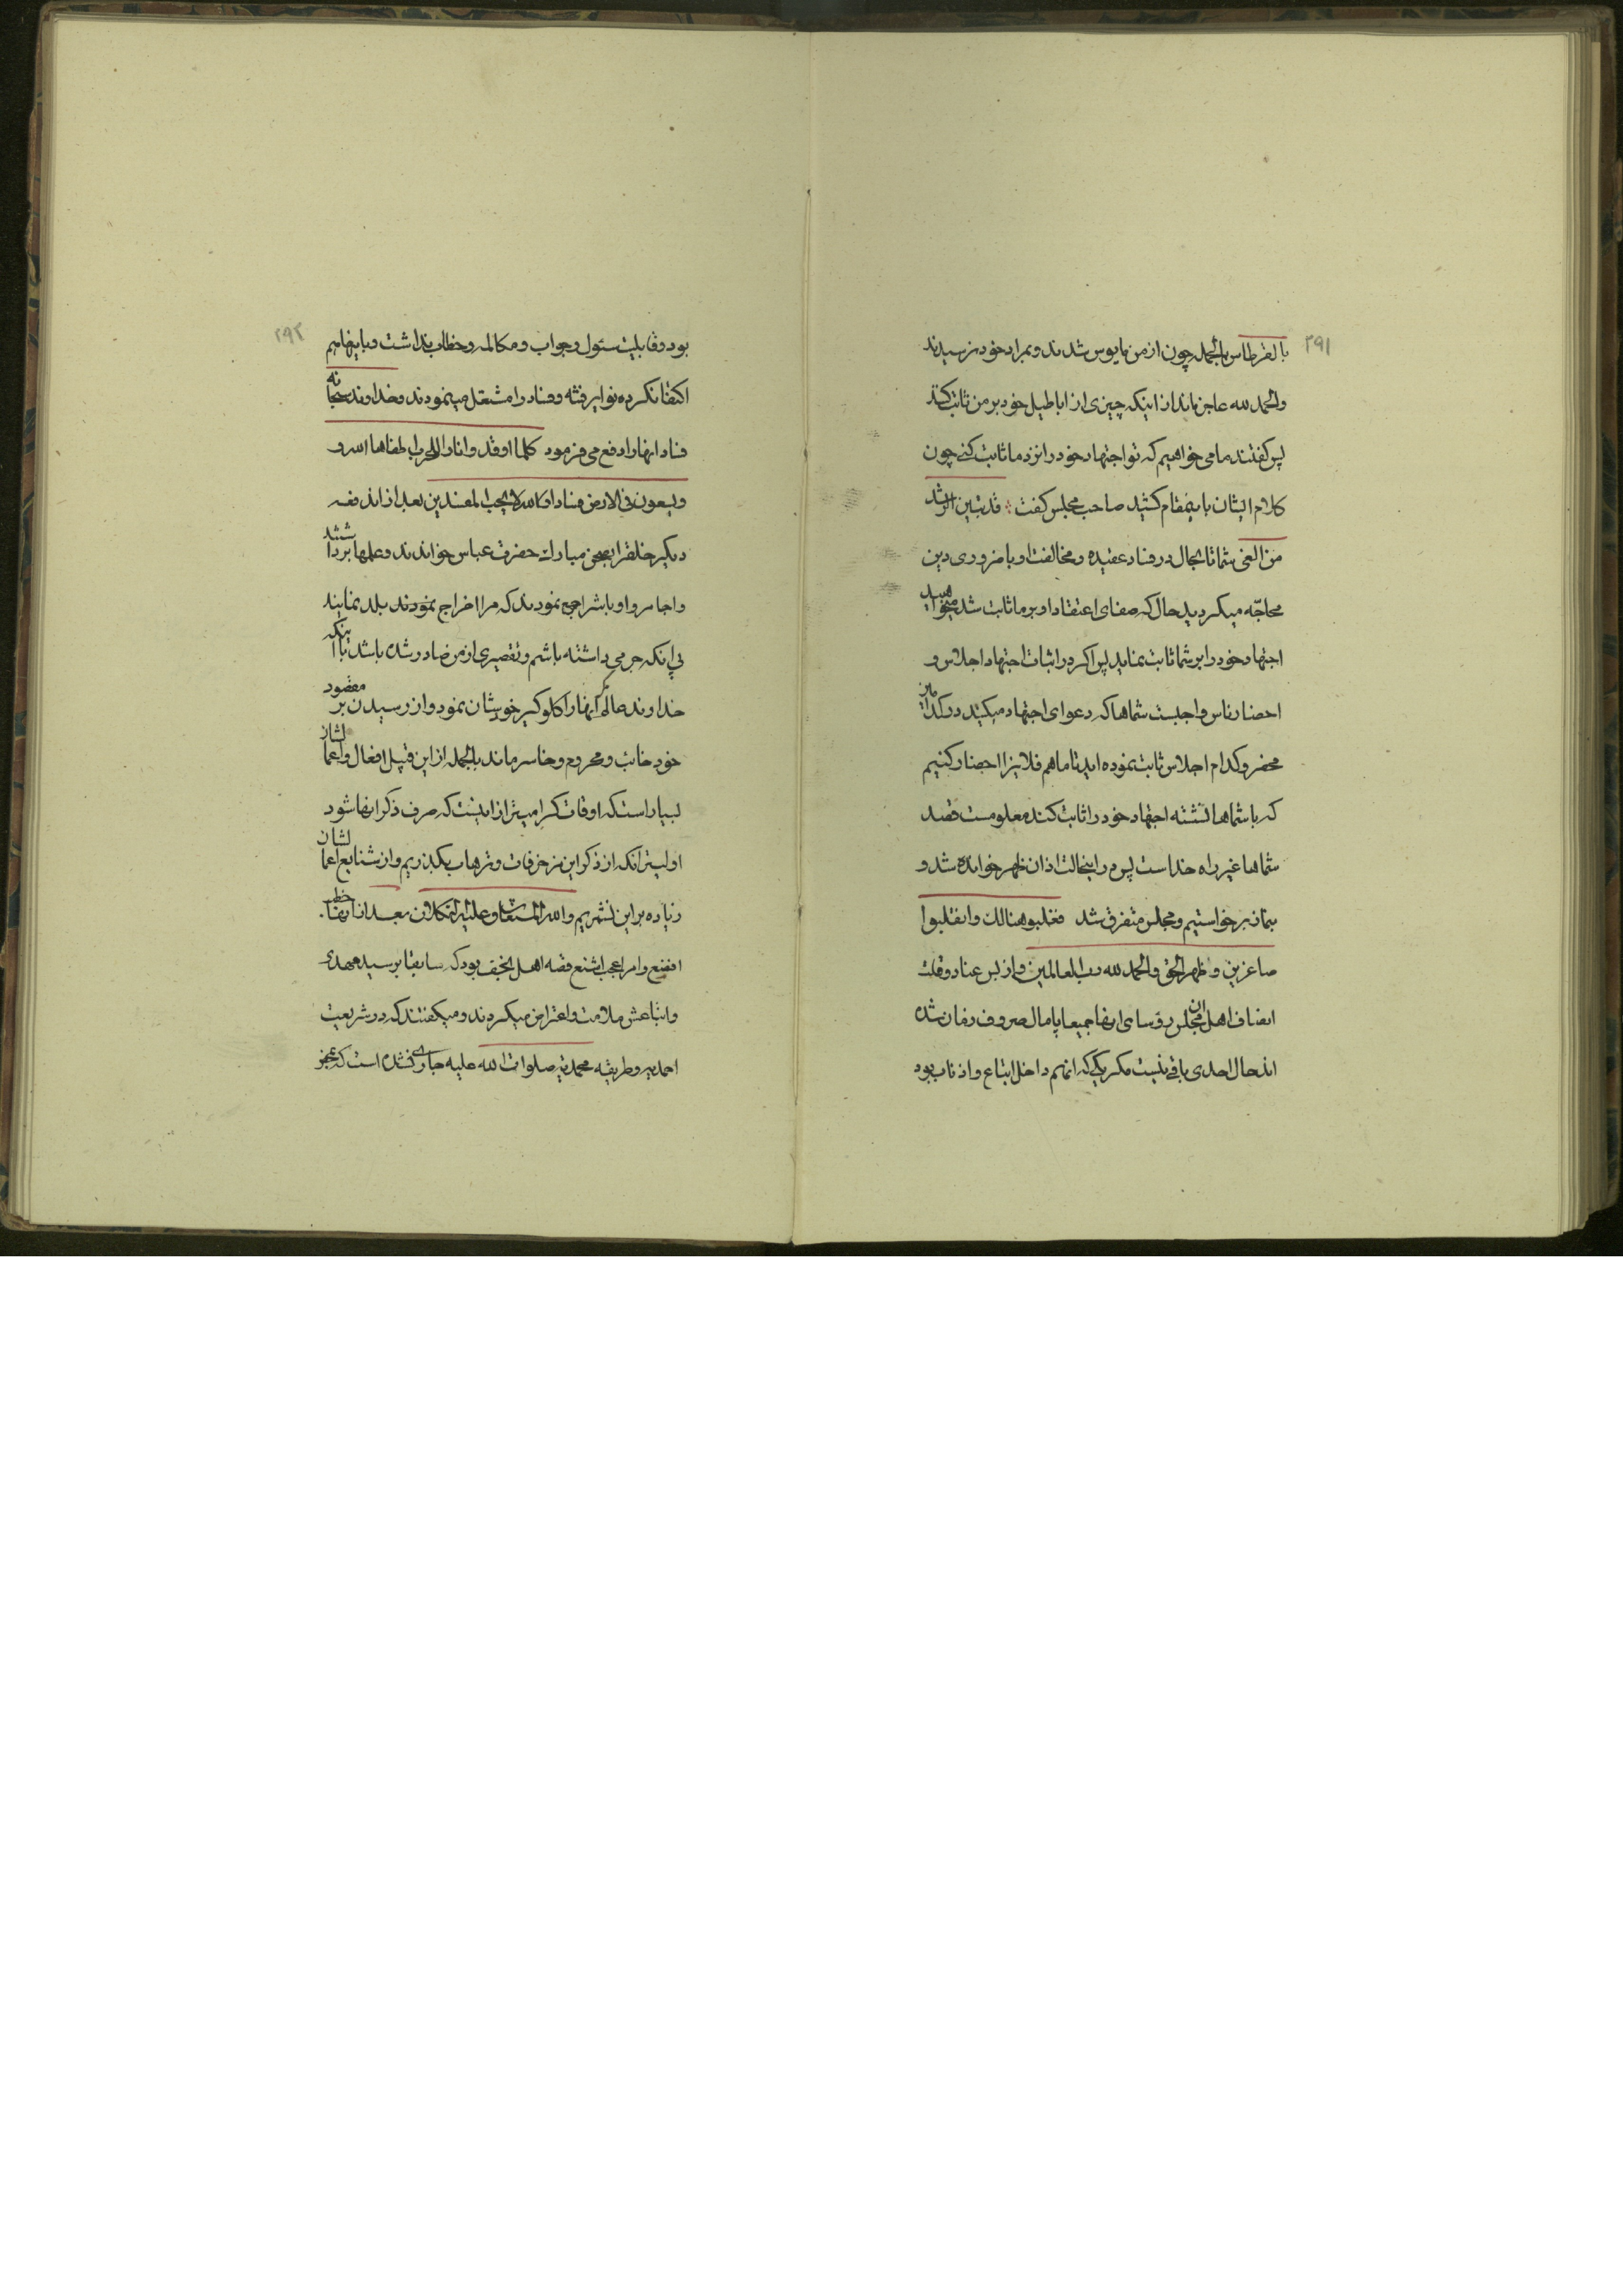 ۲۹۱
بالقرطاس بالجمله چون از من مایوس شدند و بمراد خود نرسیدند
والحمد لله عاجز ماند از اینکه چیزی از اباطیل خود بر من ثابت کند
پس گفتند ما می خواهیم که تو اجتهاد خود را نزد ما ثابت کنی چون
کلام ایشان باینمقام کشید صاحب مجلس گفت قد تبین الرشد
من الغی شما تا بحال در فساد عقیده و مخالفت او با ضروری دین
محاجّه میکردید حال که صفای اعتقاد او بر ما ثابت شد میخواهید
اجتهاد خود را بر شما ثابت نماید پس اگر در اثبات اجتهاد اجلاس و
احضار ناس واجبست شماها که دعوای اجتهاد میکنید در کدام
محضر و کدام اجلاس ثابت نموده اید تا ما هم فلانیرا احضار کنیم
که با شماها نشسته اجتهاد خود را ثابت کند معلومست قصد
شماها غیر راه خداست پس در اینحالت اذان ظهر خوانده شد و
بنماز برخواستیم و مجلس متفرق شد فغلبوا هنالک وانقلبوا
صاغرین و ظهر الحق والحمد لله رب العالمین و از بس عناد و قلت
انصاف اهل آن مجلس رؤسای انها جمیعا پامال صروف زمان شده
الدحال احدی باقی نیست مگر یکی که انهم داخل اتباع و اذناب بود
۲۹۲
بود و قابلیت سئول و جواب و مکالمه و خطاب نداشت و باینها هم
اکتفا نکرده نوایر فتنه و فساد را مشتعل مینمودند و خداوند سبحانه
فساد انها را دفع می فرمود کلما اوقدوا نارا للحرب اطفاها الله و
ویسعون فی الارض فسادا والله لا یحب المفسدین بعد از ان دفعه
دیگر خلقرا بصحن مبارک حضرت عباس خواندند و علمها برداشتند
و اجامر و اوباشرا جمع نمودند که مرا اخراج نمودند بلد نمایند
بی انکه جرمی داشته باشم و تقصیری از من صادر شده باشد با اینکه
خداوند عالم آنها را گلوگیر خودشان نمود و از رسیدن بر مقصود
خود خائب و محروم و خاسر ماند بالجمله از این قبیل افعال و اعمالشان
بسیار است که اوقات گرامیتر از اینست که صرف ذکر انها شود
اولیتر انکه از ذکر این مزخرفات و ترهات بگذریم و از شنایع اعمالشان
زیاده بر این نشمریم والله المستعان و علیه التکلان بعد از اینها خطب
افضع و امر اعجب اشنع قصه اهل نجف بود که سابقا بر سید مهدی
و اتباعش ملامت و اعتراض میکردند و میگفتند که در شریعت
احمدیه و طریقه محمدیه صلوات الله علیه جاری نشده است که غیر